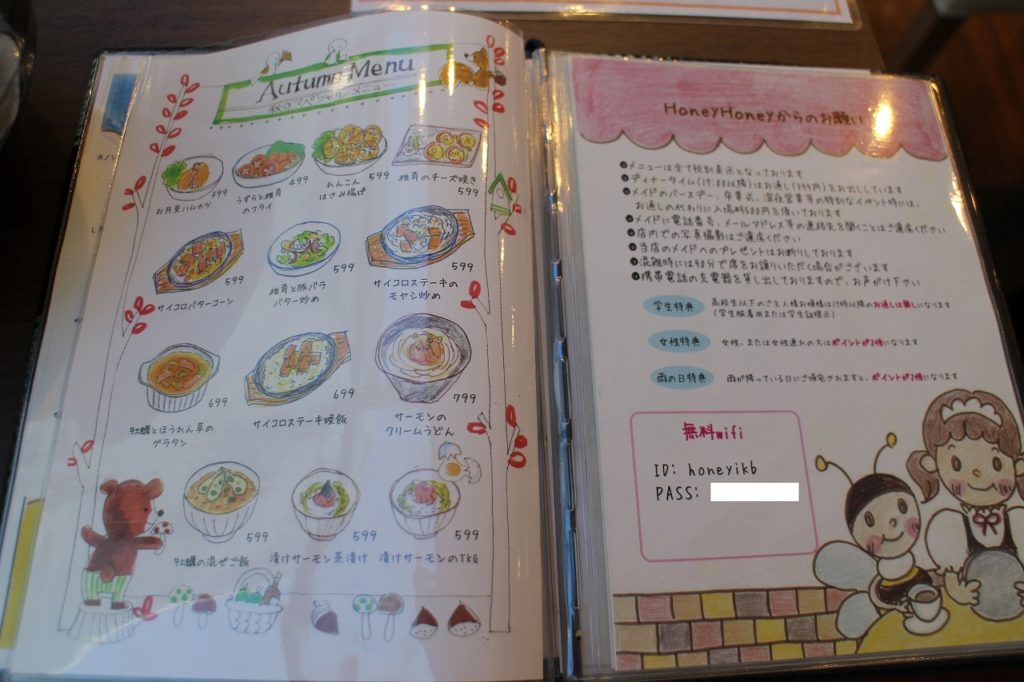 Autumn Menu
秋のスペシャルメニュー
399
お月見ハムカツ
499
うずらと椎茸
のフライ
599
れんこん
はさみ揚げ
椎茸のチーズ焼き
599
599
サイコロバターコーン
599
椎茸と豚バラ
バター炒め
599
サイコロステーキの
モヤシ炒め
699
牡蠣とほうれん草の
グラタン
699
サイコロステーキ焼飯
799
サーモンの
クリームうどん
599
牡蠣の混ぜご飯
599
漬けサーモン茶漬け
599
漬けサーモンのTKG
HoneyHoneyからのお願い
メニューは全て税別表示となっております
ディナータイム(17:00以降)はお通し(199円)をお出ししています
メイドのバースデー、卒業式、深夜営業等の特別なイベント時には、
お通しの代わりに入場料500円を頂いております
メイドに電話番号、メールアドレス等の連絡先を聞くことはご遠慮ください
店内での写真撮影はご遠慮ください
当店のメイドへのプレゼントはお断りしております
混雑時には90分で席をお譲りいただく場合がございます
携帯電話の充電器を貸し出しておりますので、お声がけ下さい
学生特典 高校生以下のご主人様お嬢様は17時以降のお通しは無しになります
(学生服着用または学生証提示)
女性特典 女性、または女性連れの方はポイントが2倍になります
雨の日特典 雨が降っている日にご帰宅されますと、ポイントが2倍になります
無料wifi
ID: honeyikb
PASS: